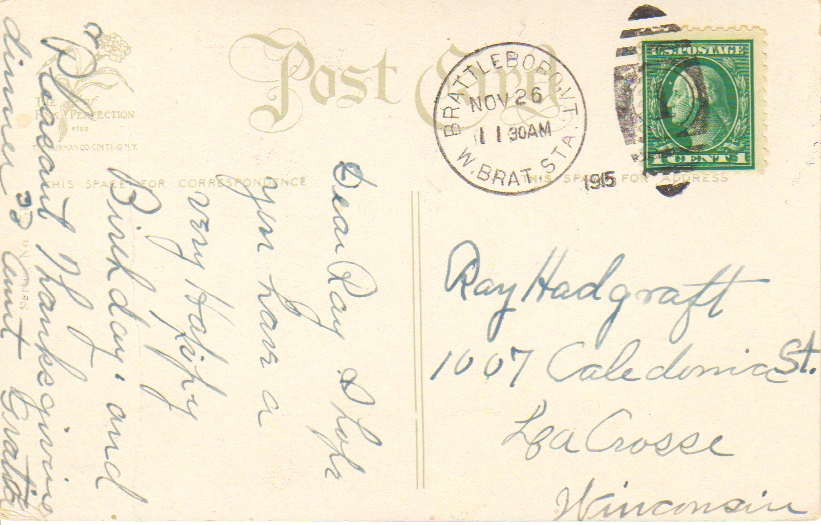 Post Card
THE
PINK OF PERFECTION
THIS SPACE FOR CORRESPONDENCE
THIS SPACE FOR ADDRESS
BRATTLEBORO, VT.
NOV 26
11 30AM
W. BRAT. STA.
1915
U.S. POSTAGE
1 CENT 1
Dear Ray I hope
you have a
very Happy
Birthday and
a Pleasant Thanksgiving
dinner
Aunt
Ray Hadgraft
1007 Caledonia St.
La Crosse
Wisconsin